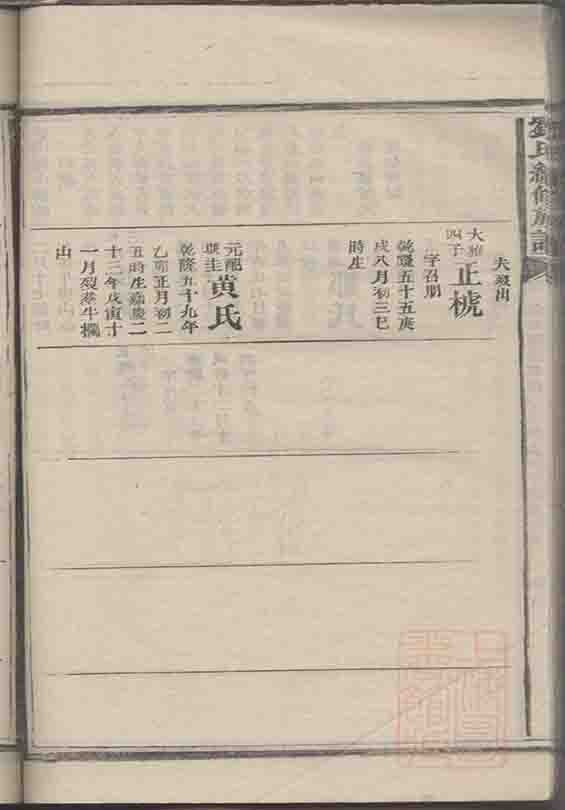 劉氏續修族譜
大雅
四子
正
字召朋
乾隆五十五庚
戌八月初三巳
時生
元配
黄氏
乾隆五十九年
乙卯正月初二
丑時生嘉慶二
十三年戊寅十
一月歿葬牛欄
山